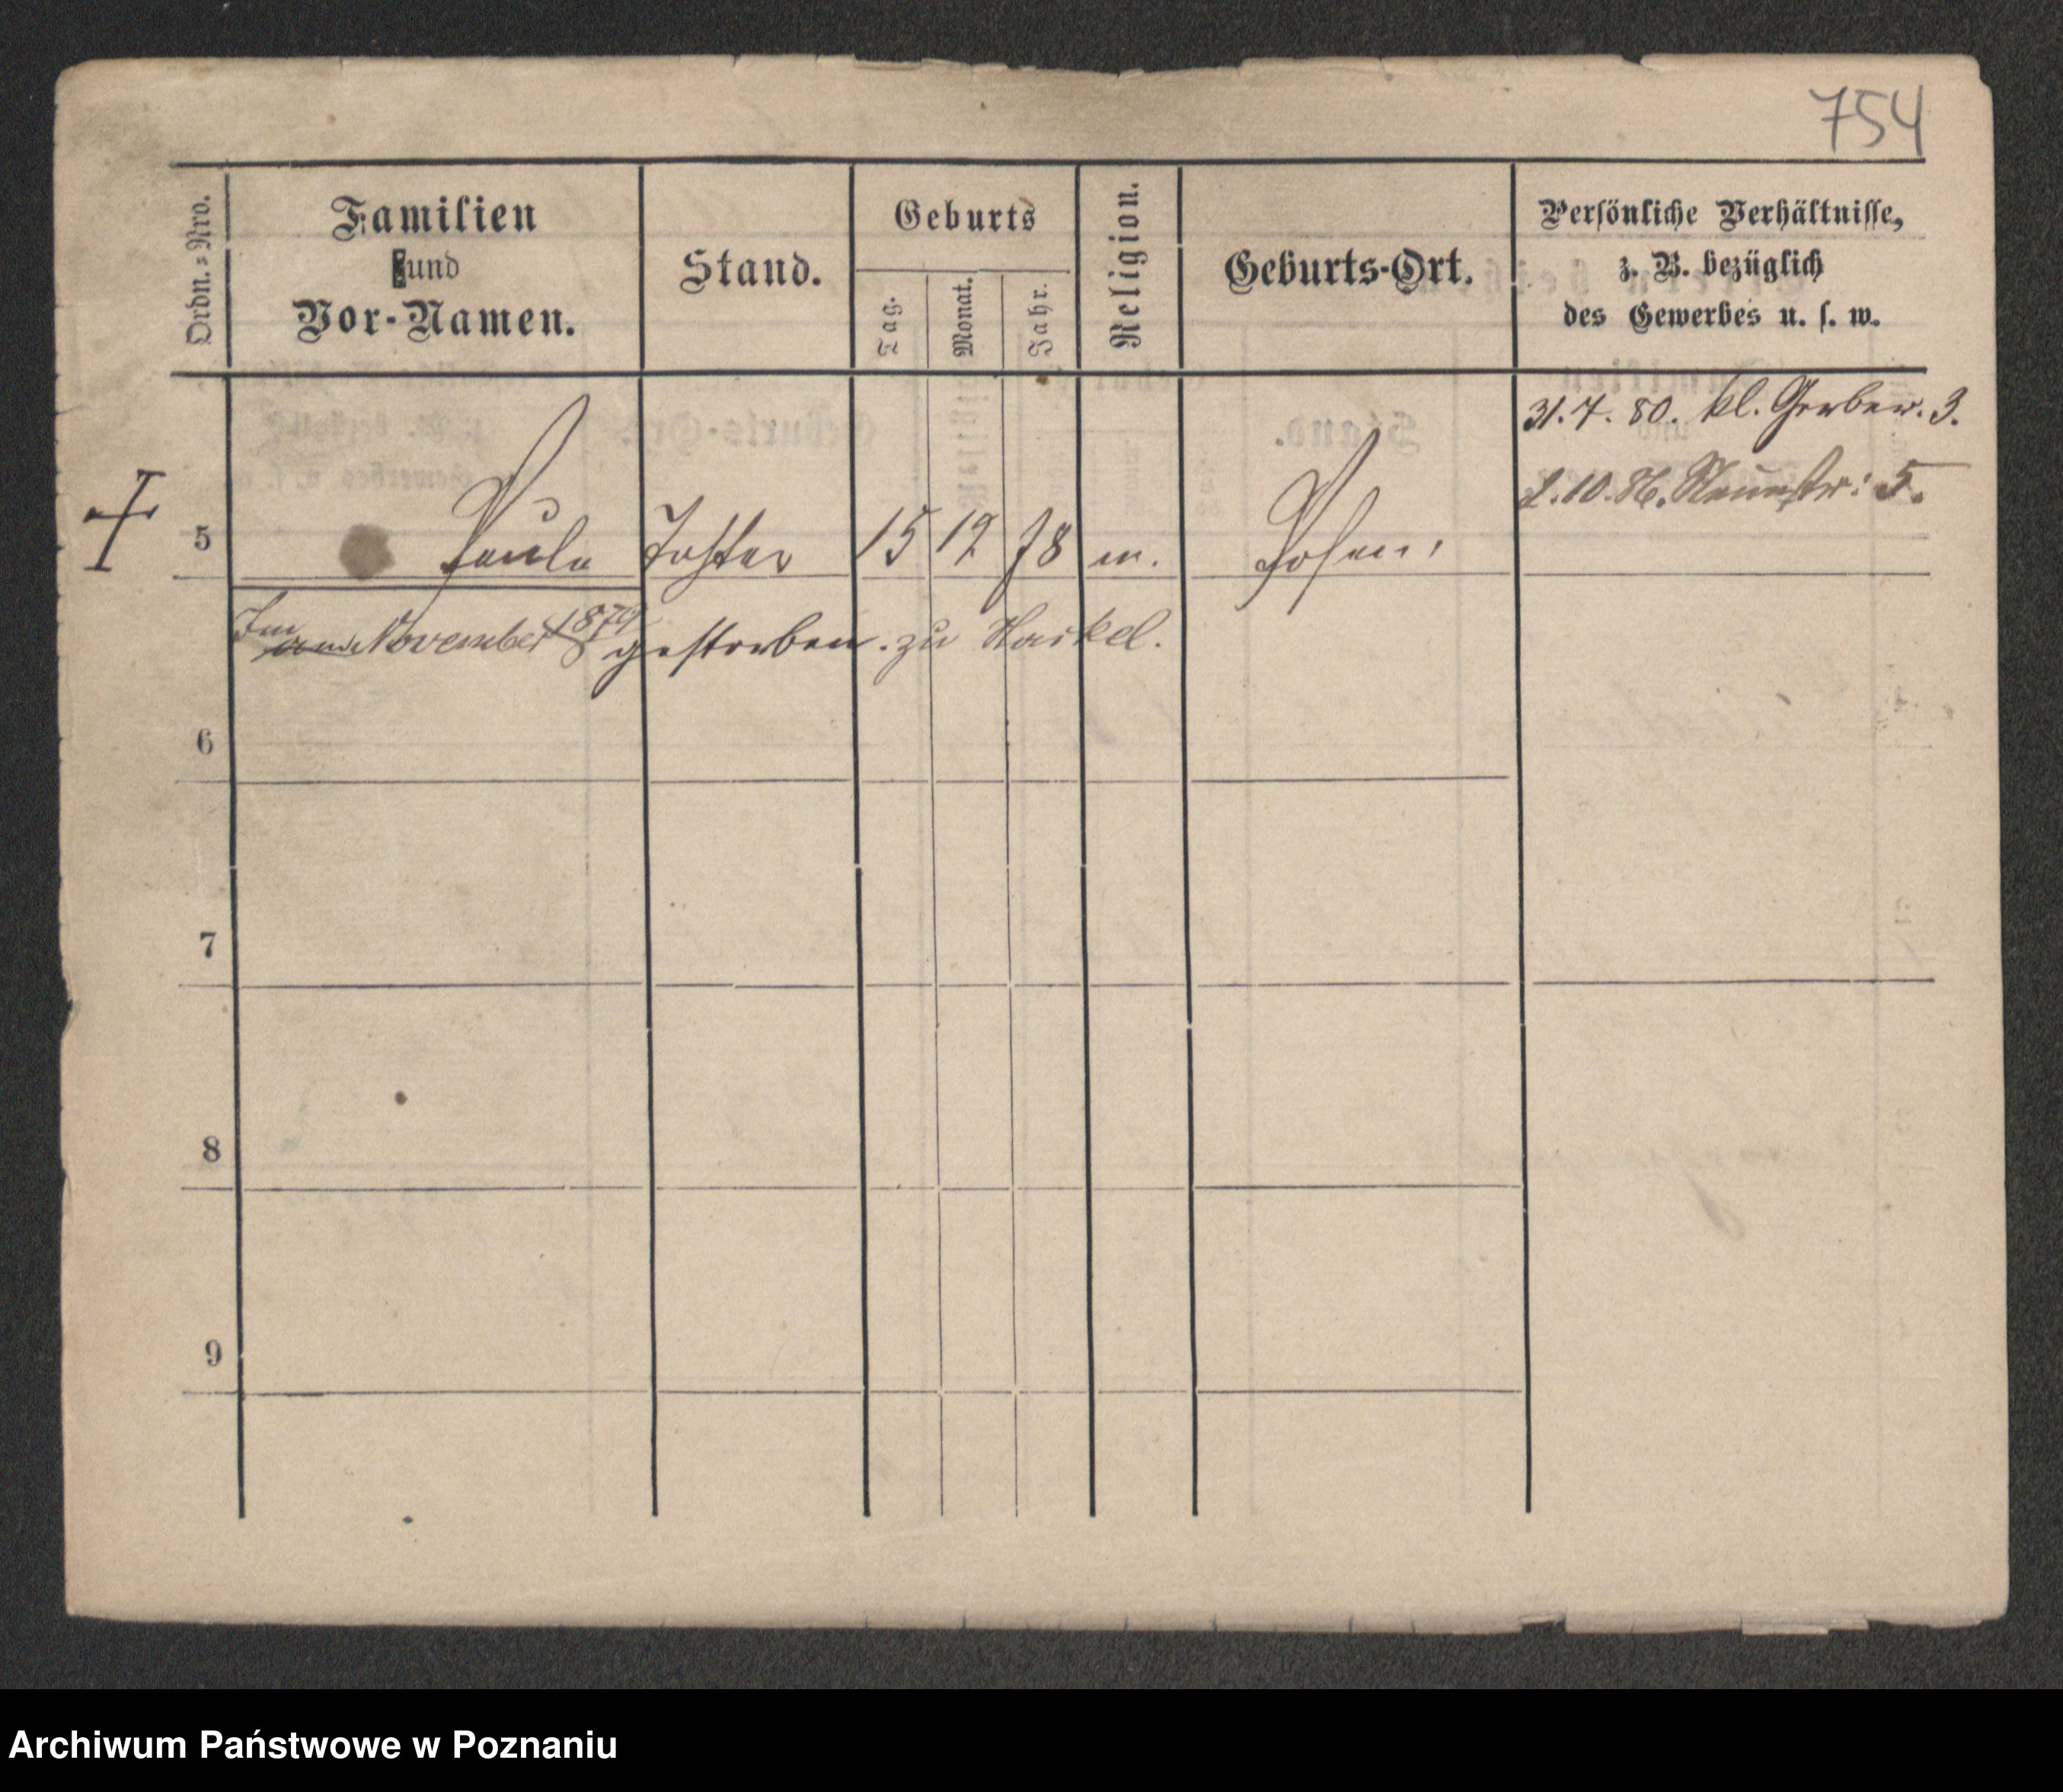 754
Ordn.=Nro.
Familien
und
Vor-Namen.
Stand.
Geburts
Tag.
Monat.
Jahr.
Religion.
Geburts-Ort.
Persönliche Verhältnisse,
z. B. bezüglich
des Gewerbes u. s. w.
31.7.80. kl. Gerber. 3.
2.10.86. Neuestr: 5.
5 Paula Tochter 15 12 78 m. Posen.
Im November 1879 gestorben. zu Nackel.
6
7
8
9
Archiwum Państwowe w Poznaniu